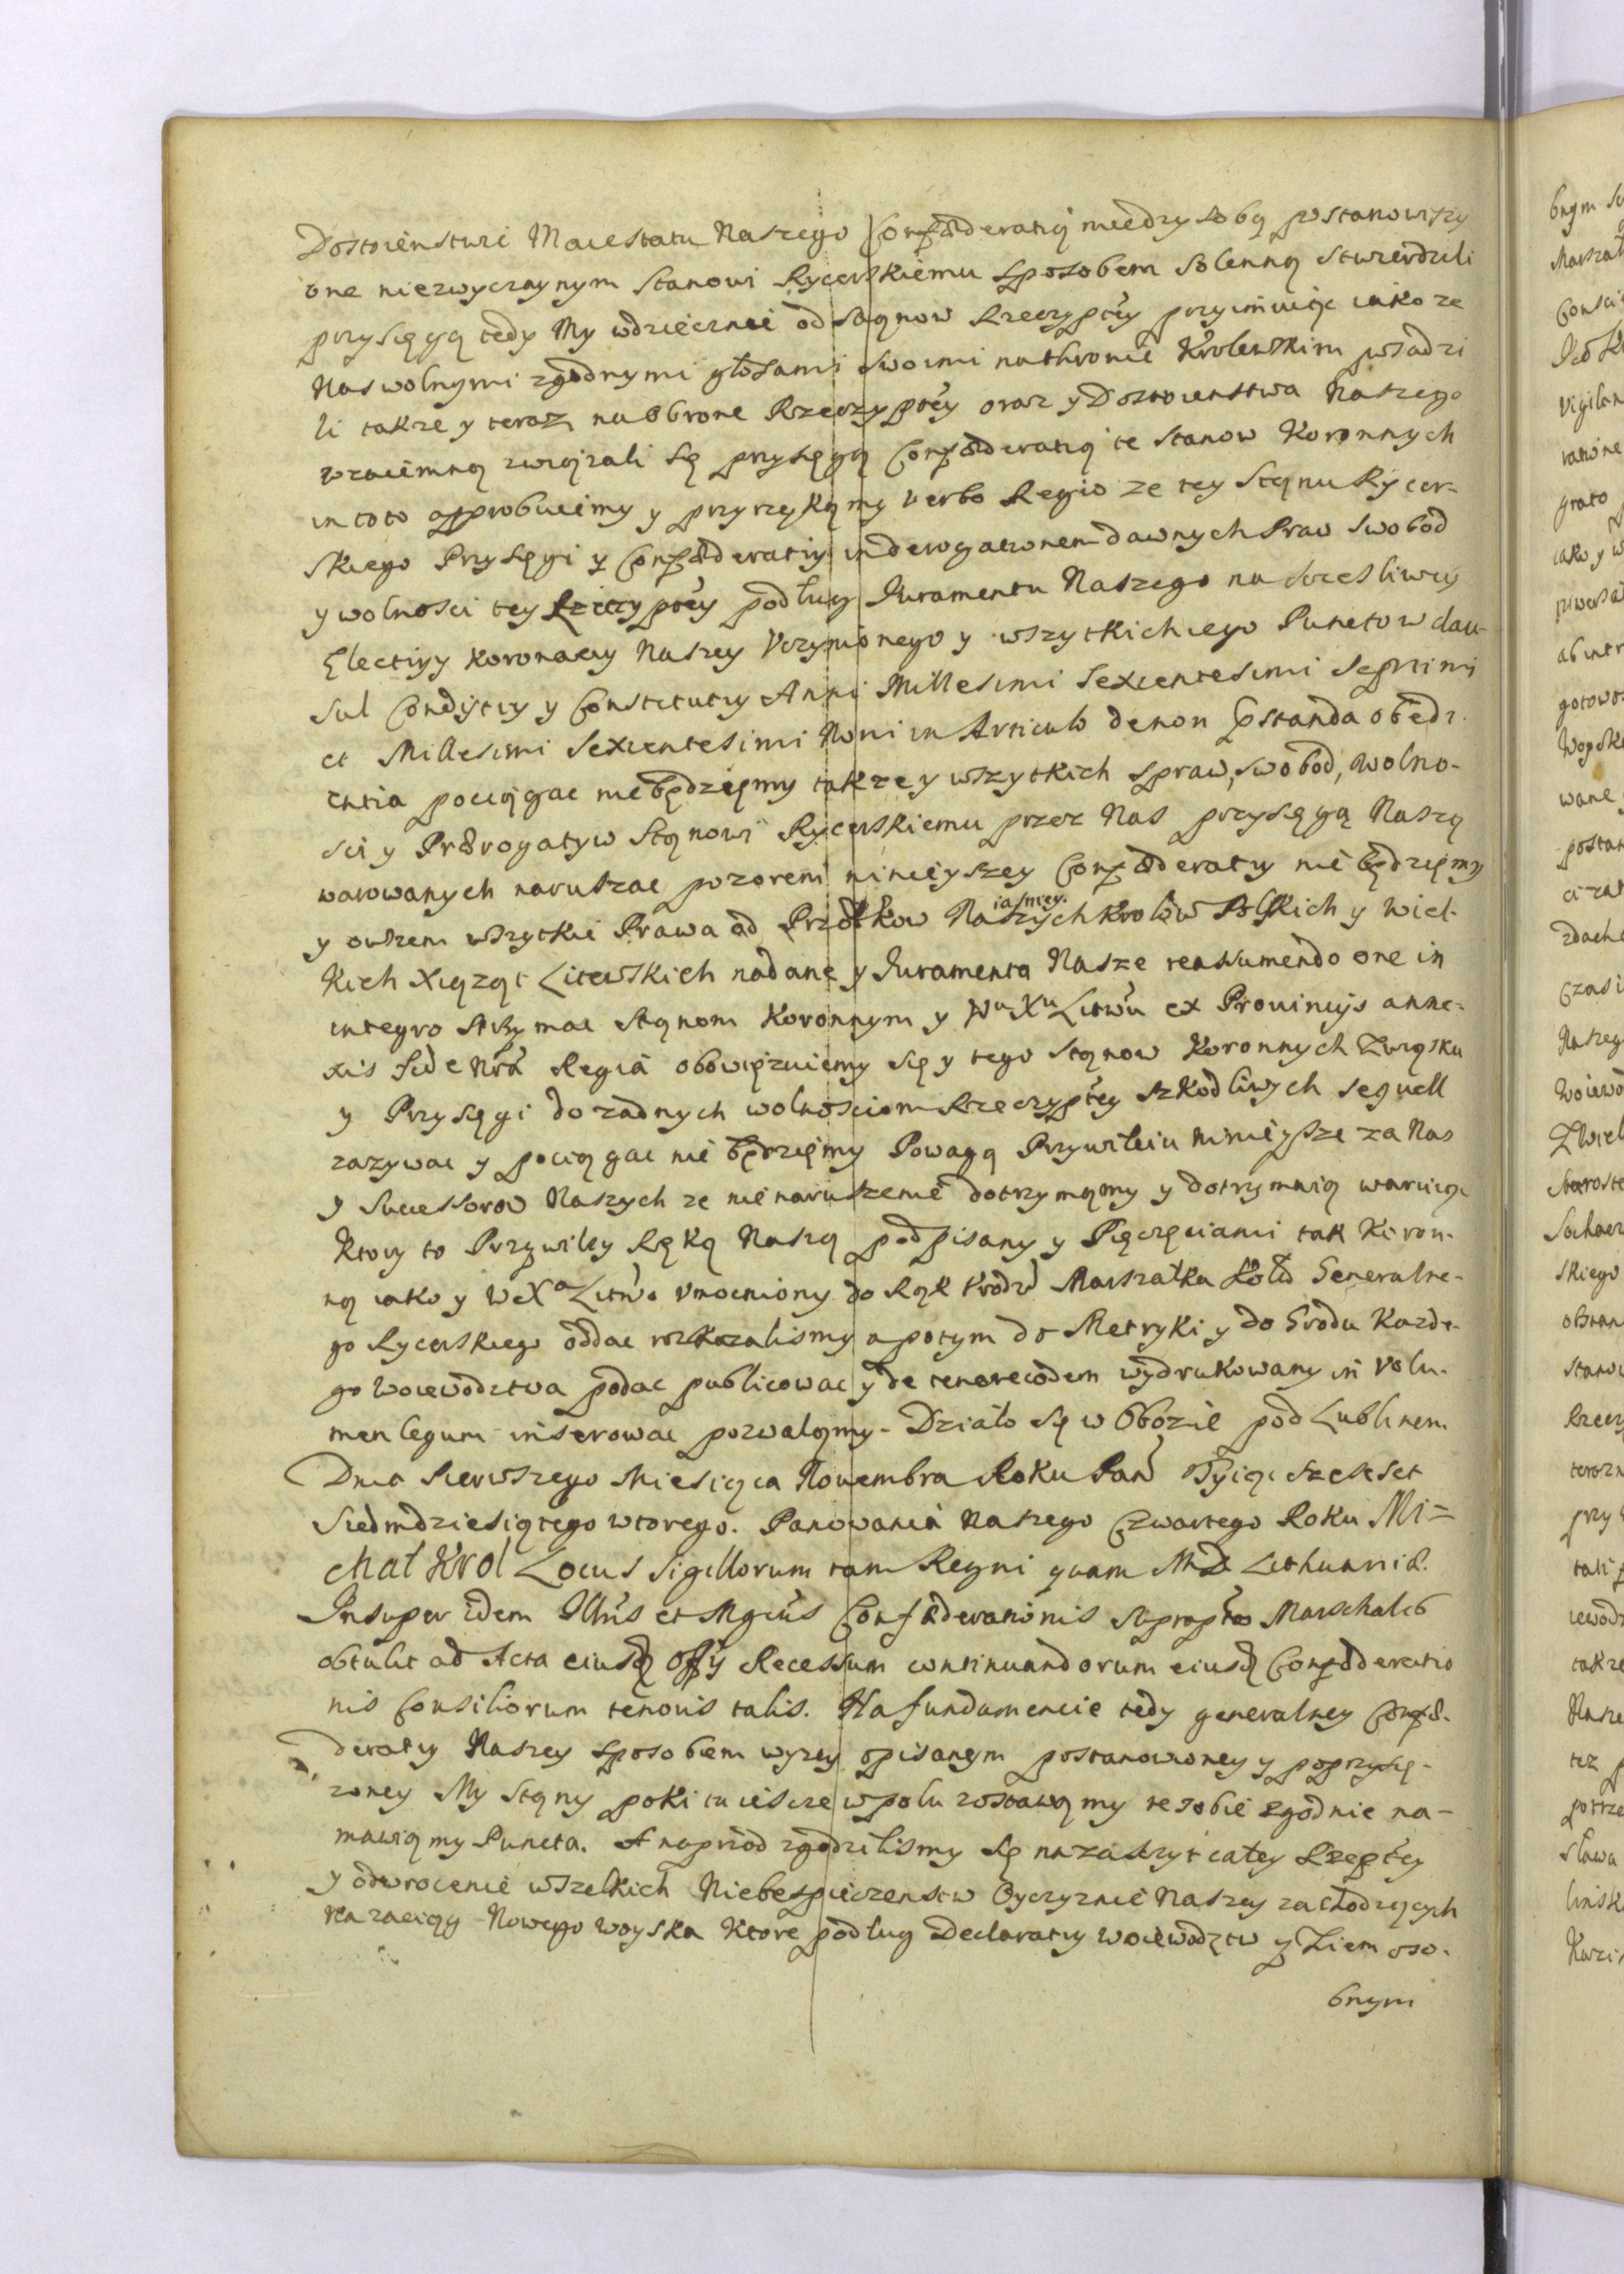 Dostoienstwie Maiestatu Naszego Confæderatią miedzy sobą postanowiszy
one niezwyczaynym stanowi Rycerskiemu sposobem solenną stwierdzili
przysięgą tedy My wdziecznie od Stąnow Rzeczyptey przyimuiąc iako ze
Nas wolnymi zgodnymi głosami swoimi na thronie Krolewskim wsadzi
li takze y teraz na obrone Rzeczyptey oraz y Dostoienstwa Naszego
wzaiemną zwiąjzali się przysięgą Confæderatią te Stanow Koronnych
in toto approbuiemy y przyrzekąmy verbo Regio ze tey Stąnu Rycer-
skiego Przysięgi y Confæderatiy in derogationem dawnych Praw swobod
y wolnosci tey Rzeczyptey podług Juramentu Naszego na szczesliwey
Electiyy Koronacyy Naszey Vczynionego y wszytkich iego Punctow clau-
sul Conditiy y Constitutiy Anni Millesimi Sexcentesimi Septimi
et Millesimi Sexcentesimi Noni in Articulo de non Præstanda obedi-
entia pociągac nie będzięmy takze y wszytkich spraw, swobod, wolno-
sci y Prærogatyw Stąnowi Rycerskiemu przez Nas przysięgą Naszą
warowanych naruszac pozorem ninieyszey Confæderatiy nie będzięmy
y owszem wszytkie Prawa od Przodkow Naszych iasniey. Krolow Polskich y Wiel-
kich Xiąząt Litewskich nadane y Juramenta Nasze reassumendo one in
integro strzymac Stąnom Koronnym y Wu Xu Litwu ex Provincijs anne-
xis fide Nrã Regiâ obowięzuiemy się y tego Stąnow Koronnych Związku
y Przysięgi do zadnych wolnosciom Rzeczyptey szkodliwych sequell
zazywac y pociągac nie będzięmy Powagą Przywileiu ninieysze za Nas
y Successorow Naszych ze nienaruszenie dotrzymąmy y dotrymaią waruiąc
Ktory to Przywiley Ręką Naszą podpisany y Pięczęciami tak Koron-
ną iako y WXa Litwo vmocniony do Rąk Vrodz Marszałka Koła Generalne-
go Rycerskiego oddac rozkazalismy a potym do Metryki y do Grodu Kazde-
go Woiewodztwa podac publicowac y de tenore eodem wydrukowany in Volu-
men legum inserowac pozwaląmy - Działo się w Obozie pod Lublinem
Dnia Pierwszego Miesiąca Nouembra Roku Pan Tysiąc szeset
Siedmdziesiątego wtorego. Panowania Naszego Czwartego Roku Mi=
chał Krol Locus Sigillorum tam Regni quam M D Lithuaniæ.
Insuper idem Illrus et Mgcus Confæderationis supraptæ Marschalcus
obtulit ad Acta eiusq Offy Recessum continuandorum eiusq Confæderatio
nis Consiliorum tenoris talis. Na fundamencie tedy generalney Confæ-
deratiy Naszey sposobem wyzey opisanym postanowioney y poprzysię-
zoney My Stąny poki tu iescze w polu zostawąmy te sobie zgodnie na-
mawiąmy Puncta. A naprzod zgodzilismy się na zaszczyt całey Rzeptey
y odwrocenie wszelkich Niebespieczenstw Oyczyznie Naszey zachodzących
na zaciąg Nowego woyska Ktore podług Declaratiy Woiewodztw y Ziem oso-
bnym